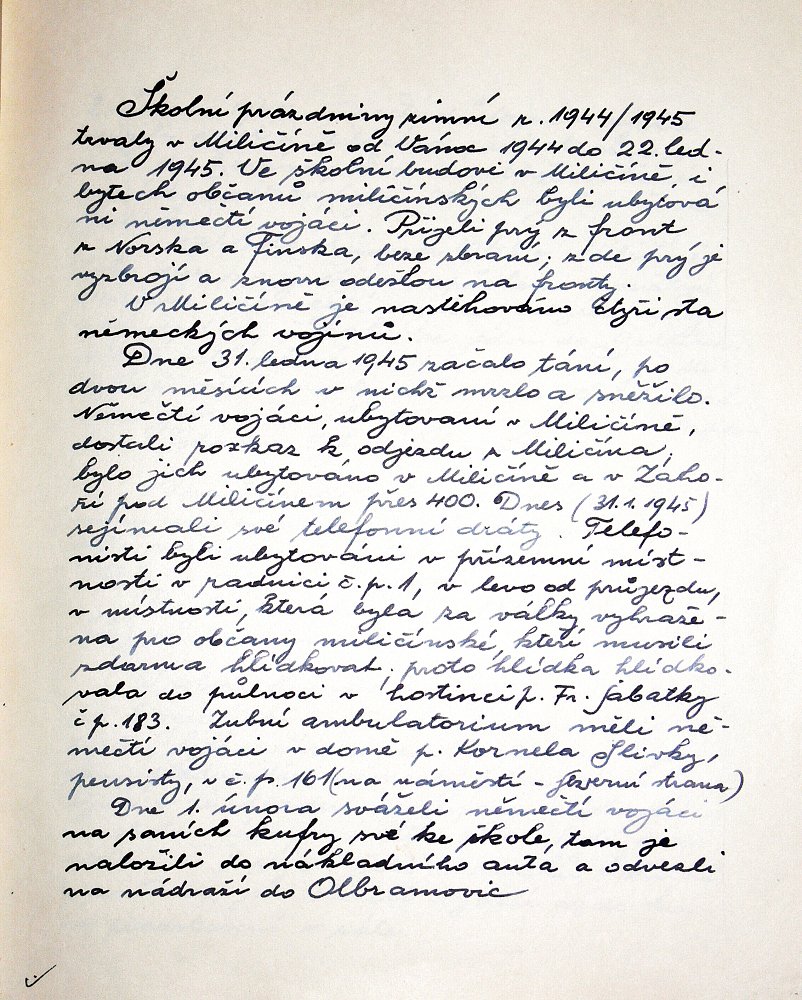 Školní prázdniny zimní r. 1944/1945
trvaly v Miličíně od Vánoc 1944 do 22. led-
na 1945. Ve školní budově v Miličíně, i
bytech občanů miličínských byli ubytová
ni němečtí vojáci. Přijeli prý z front
z Norska a Finska, beze zbraní; zde prý je
vyzbrojí a znovu odešlou na fronty.
V Miličíně je nastěhováno čtyři sta
německých vojínů.
Dne 31. ledna 1945 začalo tání, po
dvou měsících v nichž mrzlo a sněžilo.
Němečtí vojáci, ubytovaní v Miličíně,
dostali rozkaz k odjezdu z Miličína;
bylo jich ubytováno v Miličíně a v Záho-
ří pod Miličínem přes 400. Dnes (31.1.1945)
sejímali své telefonní dráty. Telefo-
nisti byli ubytováni v přízemní míst-
nosti v radnici č.p.1, v levo od průjezdu,
v místnosti, která byla za války vyhraže-
na pro občany miličínské, kteří musili
zdarma hlídkovat, proto hlídka hlídko-
vala do půlnoci v hostinci p. Fr. Sabatky
čp. 183. Zubní ambulatorium měli ně-
mečtí vojáci v domě p. Kornela Slivky,
pensisty, v č.p. 161 (na náměstí - severní strana)
Dne 1. února sváželi němečtí vojáci
na saních kufry své ke škole, tam je
naložili do nákladního auta a odvezli
na nádraží do Olbramovic